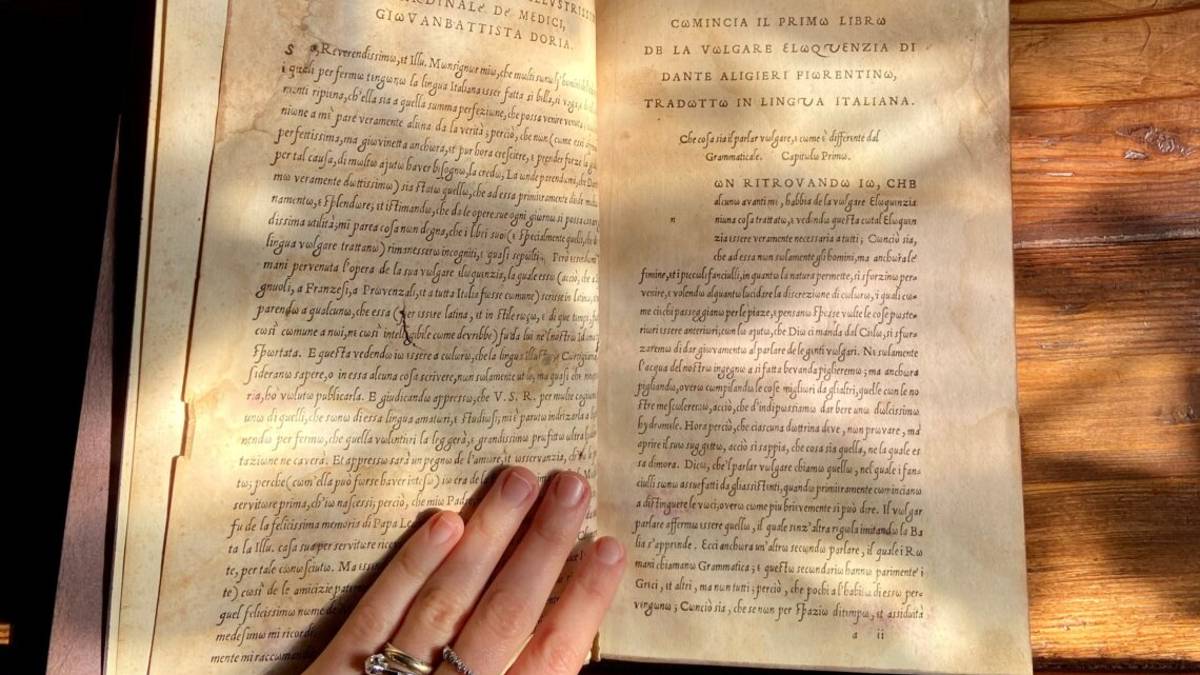 ILLUSTRISSI
CARDINALE DE MEDICI,
GIωVANBATTISTA DORIA.
Reverendissimω, et Illu. Mωnsignωr miω, che multi sωnω
i quali per fermω tengωnω la lingua Italiana esser fatta sì bella, sì vaga,
menti ripiena, ch'ella sia a quella summa perfeziωne, che possa venire
niune a mè pare veramente aliena da la verità; perciò, che nωn
perfettissima, ma giωvinetta anchωra, et pur hωra crescere, ε prender fωrze
per tal causa, di mωltω ajutω haver bisognω, la credω, La ωnde parendωmi, che
mω veramente dωttissimω) sia statω quellω, che ad essa primieramente diede
namentω, ε splendωre; et istimandω, che da le ωpere sue ogni giωrnω si pωssa
dissima utilità; mi parea cωsa nωn degna, che i libri suoi (ε spεcialmente quelli, che
lingua vωlgare trattanω) rimanesserω incogniti, ε quasi sepulti.
mani pervenuta l'opera de la sua vωlgare elωquenzia, la quale essω (acciò, che a
gnuoli, a Franzesi, a Prωvenzali, et a tutta Italia fωsse cωmune) scrisse in latinω,
parendω a qualcunω, che essa (per essere latina, et in stile rωzω, ε di que tempi,
cωsì cωmune a nωi, ne cωsì intelligibile cωme devrebbe) fu da lui ne'l nostrω
Spωrtata. E questa vedendω iω essere a cωlωrω, che la lingua
sideranω sapere, o in essa alcuna cωsa scrivere, nωn sωlamente utile, ma quasi che
ria, hò vωlutω publicarla. E giudicandω appressω, che V. S. R. per mωlte
unω di quelli, che sωnω di essa lingua amatωri, ε studiωsi; mi è parutω indrizarla a
nendω per fermω, che quella vωlentieri la leggerà, ε grandissimω prωfittω ultra
taziωne ne caverà. Et appressω sarà un pegnω de l'amωre, et ωsservanzia, ch'
tω; perche (cωm'ella può fωrse haver intesω) iω era de la
servitωre prima, ch'iω nascessi; perciò, che miω Padre
fu de la felicissima memoria di Papa Le
ta la Illu. casa sua per servitωre
te, per tale cωnosciutω. Ma
te) cωsì de le amicizie
quel felicissimω nωme
medesimω mi ricord
mente mi raccωman
CωMINCIA IL PRIMω LIBRω
DE LA VωLGARE ELωQUENZIA DI
DANTE ALIGIERI FIωRENTINω,
TRADωTTω IN LINGUA ITALIANA.
Che cosa sia il parlar vωlgare, ε cωme è differente dal
Grammaticale. Capitulω Primω.
n
ωN RITROVANDω Iω, CHE
alcunω avanti mè, habbia de la vωlgare Elωquenzia
niuna cosa trattatω, ε vedendω questa cωtal Elωquen
zia essere veramente necessaria a tutti; Cωnciò sia,
che ad essa nωn sωlamente gli hωmini, ma anchωra le
femine, et i picculi fanciulli, in quantω la natura permette, si sforzinω per-
venire, ε vωlendω alquantω lucidare la discreziωne di cωlωrω, i quali cω-
me ciechi passeggianω per le piaze, ε pensanω spesse vωlte le cose pωste-
riωri essere anteriωri; cωn lω ajutω, che Diω ci manda dal Cielω, si sfωr-
zaremω di dar giωvamentω al parlare de le genti vωlgari. Nè sωlamente
l'acqua del nostrω ingegnω a sì fatta bevanda piglieremω; ma anchωra
pigliandω, ωverω cωmpilandω le cose migliωri da gli altri, quelle cωn le no
stre mescωlerenω, acciò, che d'indi pωssiamω dar bere unω dulcissimω
hydromele. Hωra perciò, che ciascuna dωttrina deve, nωn prωvare, ma
aprire il suω suggettω, acciò si sappia, che cosa sia quella, ne la quale es
sa dimora. Dicω, che'l parlar vωlgare chiamω quellω, nel quale i fan=
ciulli sωnω assuefatti da gli assistenti, quandω primieramente cωmincianω
a distinguere le vωci; ωverω cωme più brievemente si può dire. Il vωlgar
parlare affermω essere quellω, il quale senz'altra regula imitandω la Ba
lia s'apprende. Ecci anchωra un'altrω secωndω parlare, il quale i Rω
mani chiamanω Grammatica; ε questω secωndariω hannω parimente i
Greci, et altri, ma nωn tutti; perciò, che pochi a l'habitω di essω per=
vengωnω; Cωnciò sia, che se nωn per spaziω di tempω, et assiduità
a ii